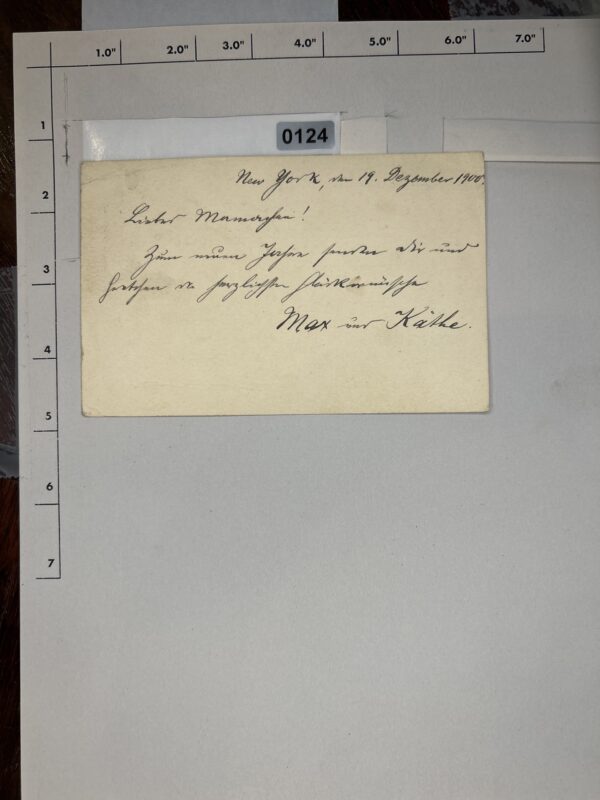 1.0" 2.0" 3.0" 4.0" 5.0" 6.0" 7.0"
1
2
3
4
5
6
7
0124
New York, den 19. Dezember 1900.
Liebes Mamachen!
Zum neuen Jahre senden Dir und
die herzlichsten Glückwünsche
Max und Käthe.